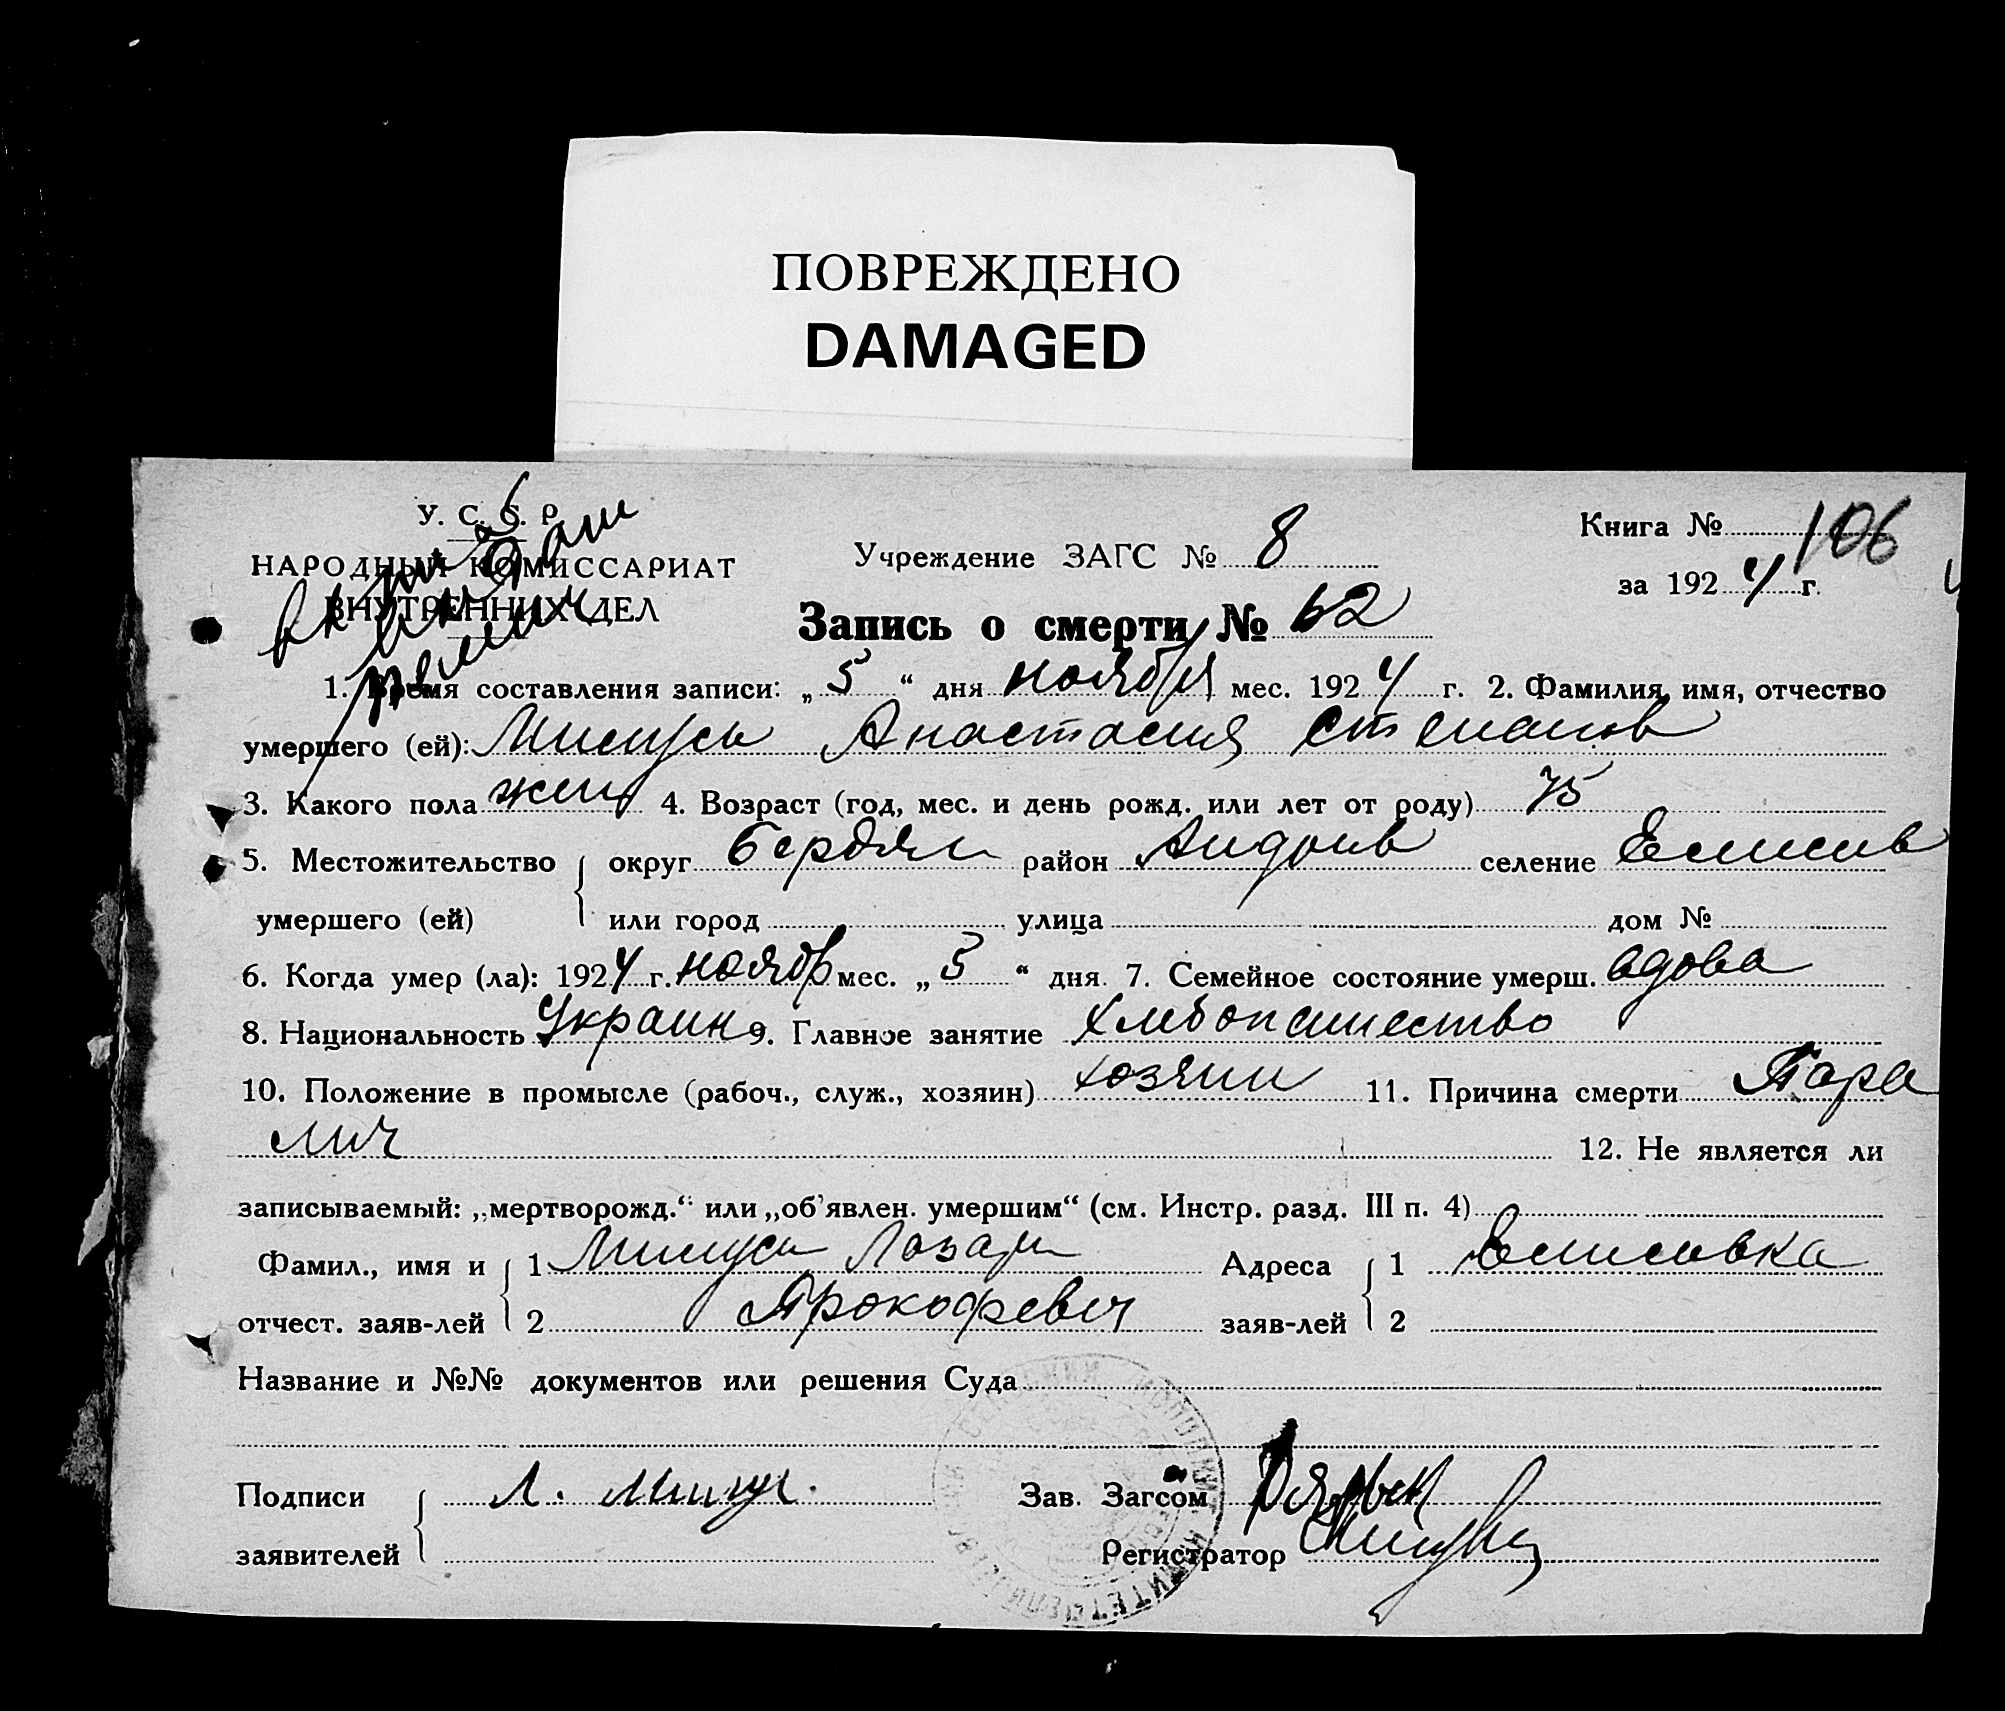 ПОВРЕЖДЕНО
DAMAGED
У. С. С. Р.
НАРОДНЫЙ КОМИССАРИАТ
ВНУТРЕННИХ ДЕЛ
Учреждение ЗАГС № 8
Книга № 106
за 1924 г.
Запись о смерти № 62
1. Время составления записи: „5“ дня ноября мес. 1924 г. 2. Фамилия, имя, отчество
умершего (ей): Анастасия Степанов
3. Какого пола жен 4. Возраст (год, мес. и день рожд. или лет от роду) 75
5. Местожительство округ Бердян район Андреев селение Елисеев
умершего (ей) или город улица дом №
6. Когда умер (ла): 1924 г. ноябр мес. „5“ дня. 7. Семейное состояние умерш. вдова
8. Национальность Украин 9. Главное занятие хлебопашество
10. Положение в промысле (рабоч., служ., хозяин) хозяин 11. Причина смерти Пара
лич 12. Не является ли
записываемый: „мертворожд.“ или „об'явлен. умершим“ (см. Инстр. разд. III п. 4)
Фамил., имя и 1 Лазарь Адреса 1 Елисеевка
отчест. заяв-лей 2 Прокофевич заяв-лей 2
Название и №№ документов или решения Суда
Подписи Л. Зав. Загсом
заявителей Регистратор